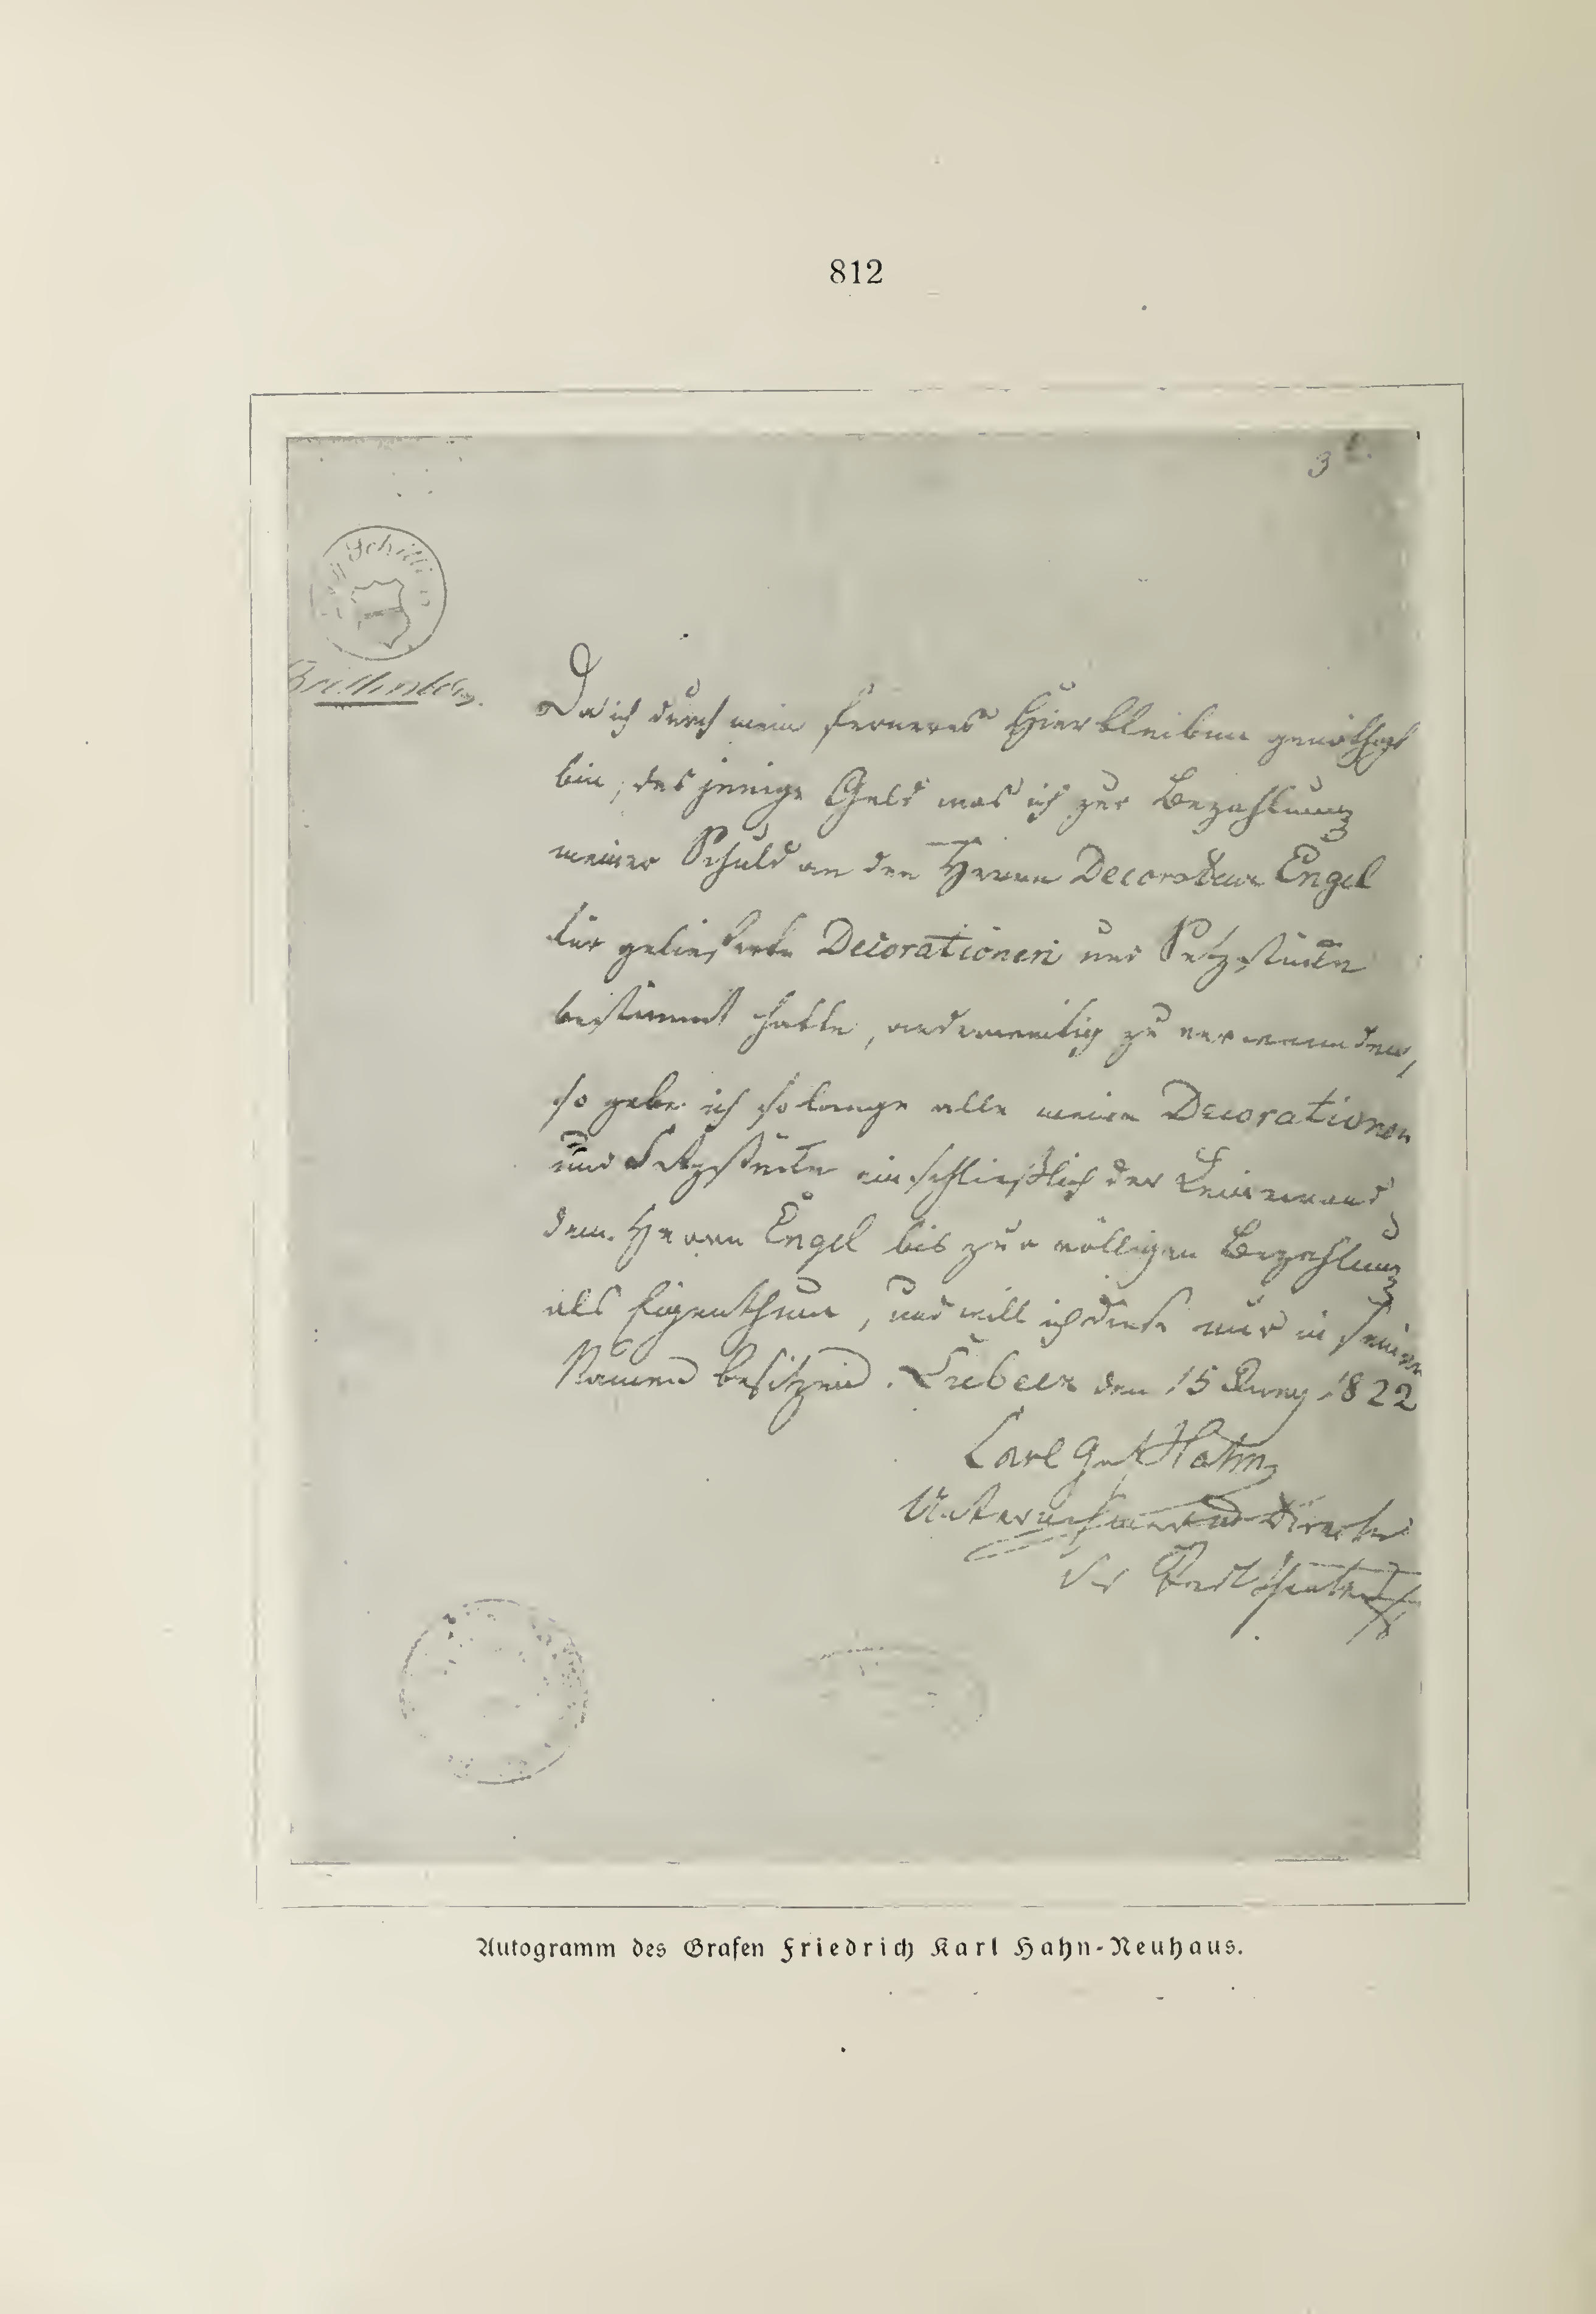 812
3
Schilli
Da ich durch mein ferneres Hierbleiben genöthigt
bin, dasjenige Geld was ich zur Bezahlung
meiner Schuld an den Herrn Decorateur Engel
für gelieferte Decorationen und Setzstücke
bestimmt hatte, anderweitig zu verwenden,
so gebe ich so lange alle meine Decorationen
und Setzstücke einschließlich der Leinewand
dem Herrn Engel bis zur völligen Bezahlung
als Eigenthum, und will ich diese nur in seinem
Namen besitzen. Lübeck den 15 Juny 1822
Carl Graf Hahn
Unternehmer und Director
des Stadttheaters
Autogramm des Grafen Friedrich Karl Hahn-Neuhaus.